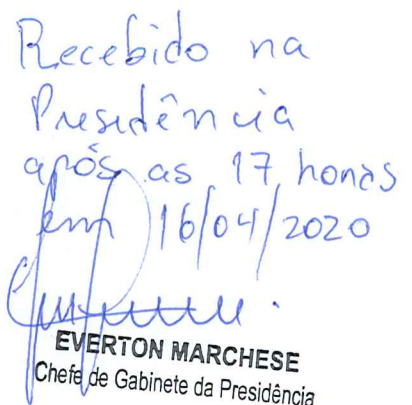 Recebido na
Presidência
após as 17 horas
em 16/04/2020
EVERTON MARCHESE
Chefe de Gabinete da Presidência